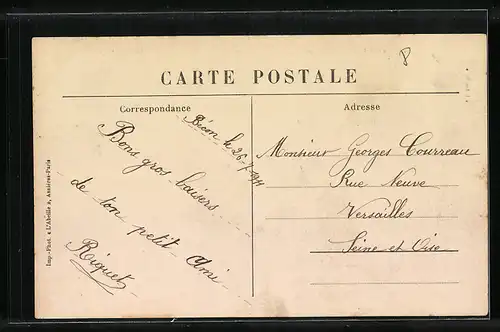 CARTE POSTALE
Correspondance
Adresse
le 26-7-1911
Bons gros baisers
de ton petit Ami
Riquet
Monsieur Georges Courreau
Rue Neuve
Versailles
Seine et Oise
Imp.-Phot. « L'Abeille », Asnières-Paris